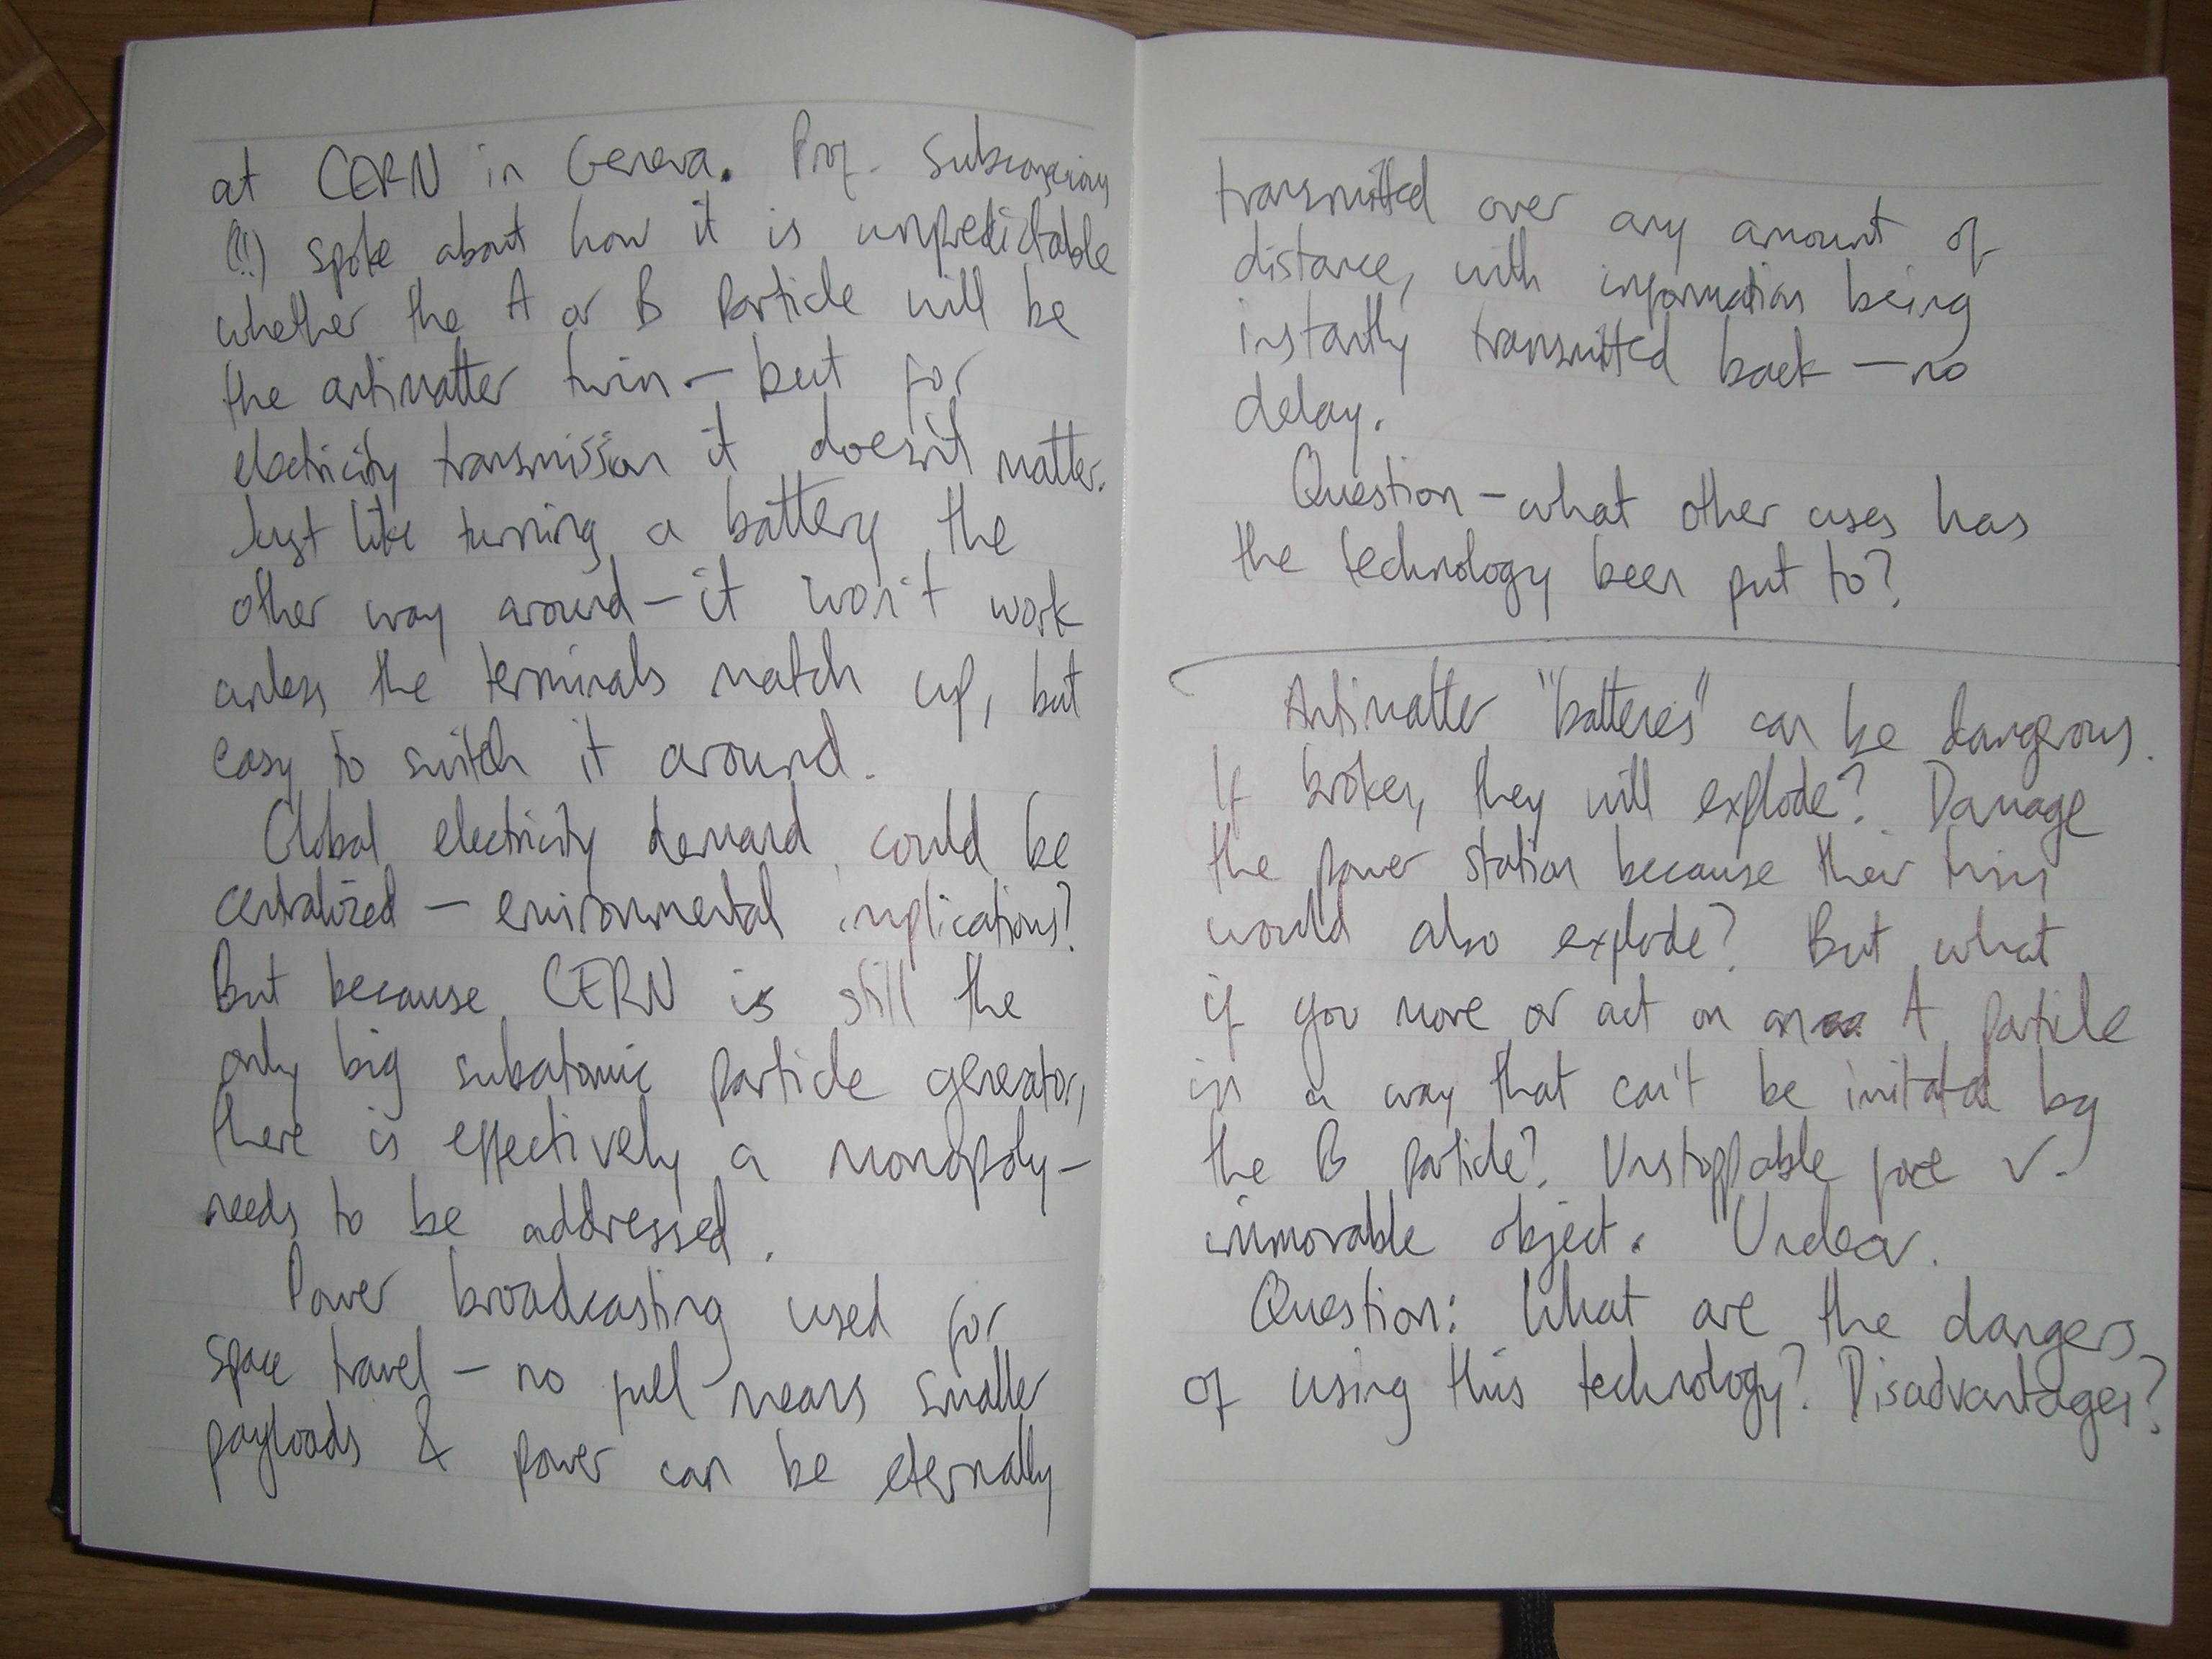 at CERN in Geneva. Prof. Subconscious
(!!) spoke about how it is unpredictable
whether the A or B particle will be
the antimatter twin – but for
electricity transmission it doesn't matter.
Just like turning a battery the
other way around – it won't work
unless the terminals match up, but
easy to switch it around.
Global electricity demand could be
centralized – environmental implications?
But because CERN is still the
only big subatomic particle generator,
there is effectively a monopoly –
needs to be addressed.
Power broadcasting used for
space travel – no fuel means smaller
payloads & power can be eternally
transmitted over any amount of
distance, with information being
instantly transmitted back – no
delay.
Question – what other uses has
the technology been put to?
Antimatter "batteries" can be dangerous.
If broken, they will explode? Damage
the power station because their twins
would also explode? But what
if you move or act on an A particle
in a way that can't be imitated by
the B particle? Unstoppable force v.
immovable object. Unclear.
Question: What are the dangers
of using this technology? Disadvantages?